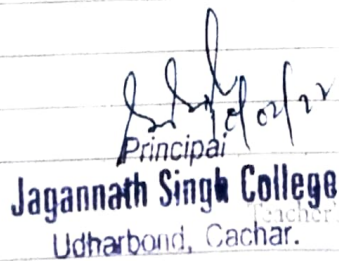 Principal
Jagannath Singh College
Teacher
Udharbond, Cachar.